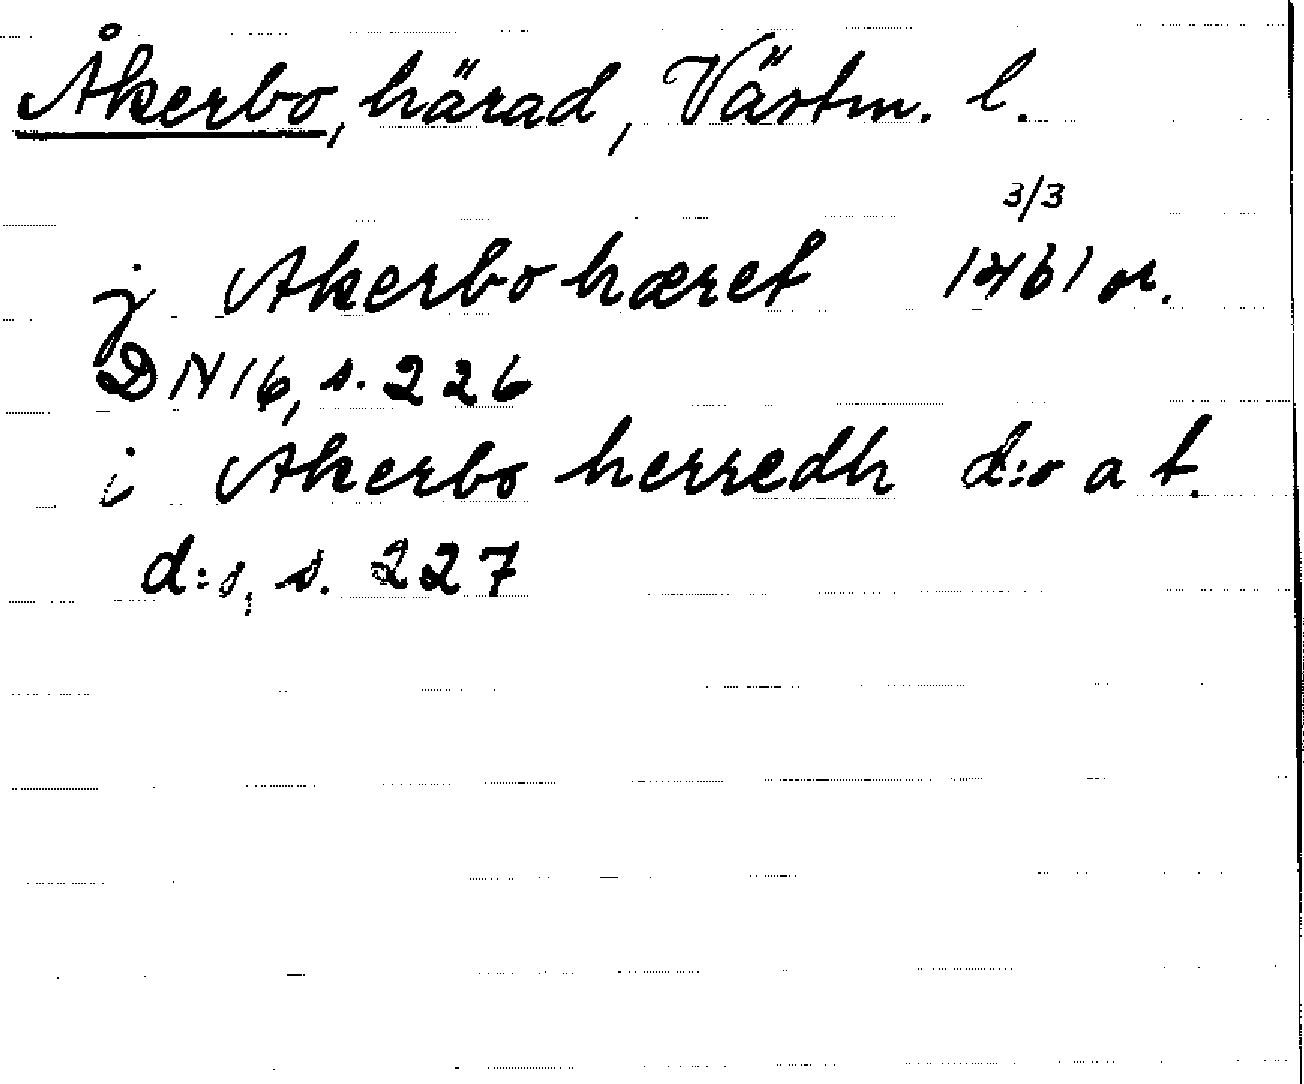 Åkerbo, härad, Västm. l.
3/3
j Akerbohæret 1461 or.
DN 16, s. 226
i Akerbo herredh d:o a t.
d:s, s. 227